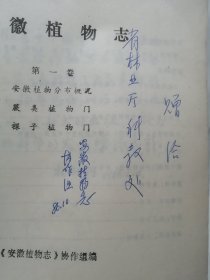 徽植物志
第一卷
安徽植物分布概况
蕨类植物门
裸子植物门
《安徽植物志》协作组编
赠给
省林业厅科教处
安徽植物志
协作组
86.10